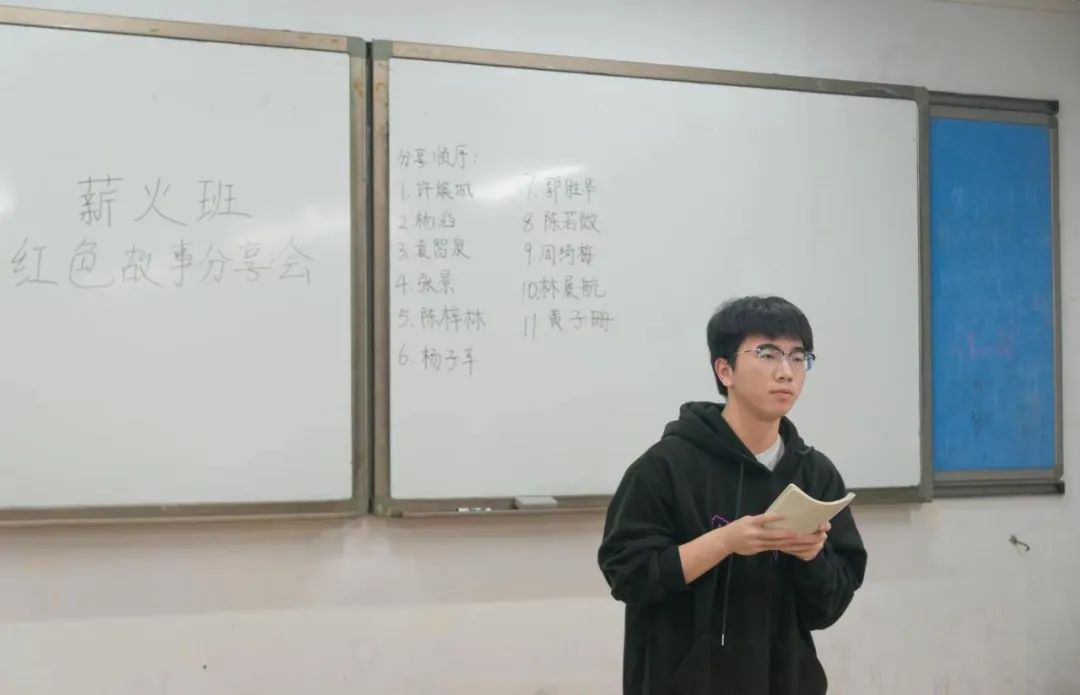 薪火班
红色故事分享会
分享顺序:
1.许焕城
2 杨滔
3.袁智泉
4.张景
5.陈梓林
6.杨子车
7.郭胜华
8 陈若微
9.周绮梅
10.林展航
11 黄子珊